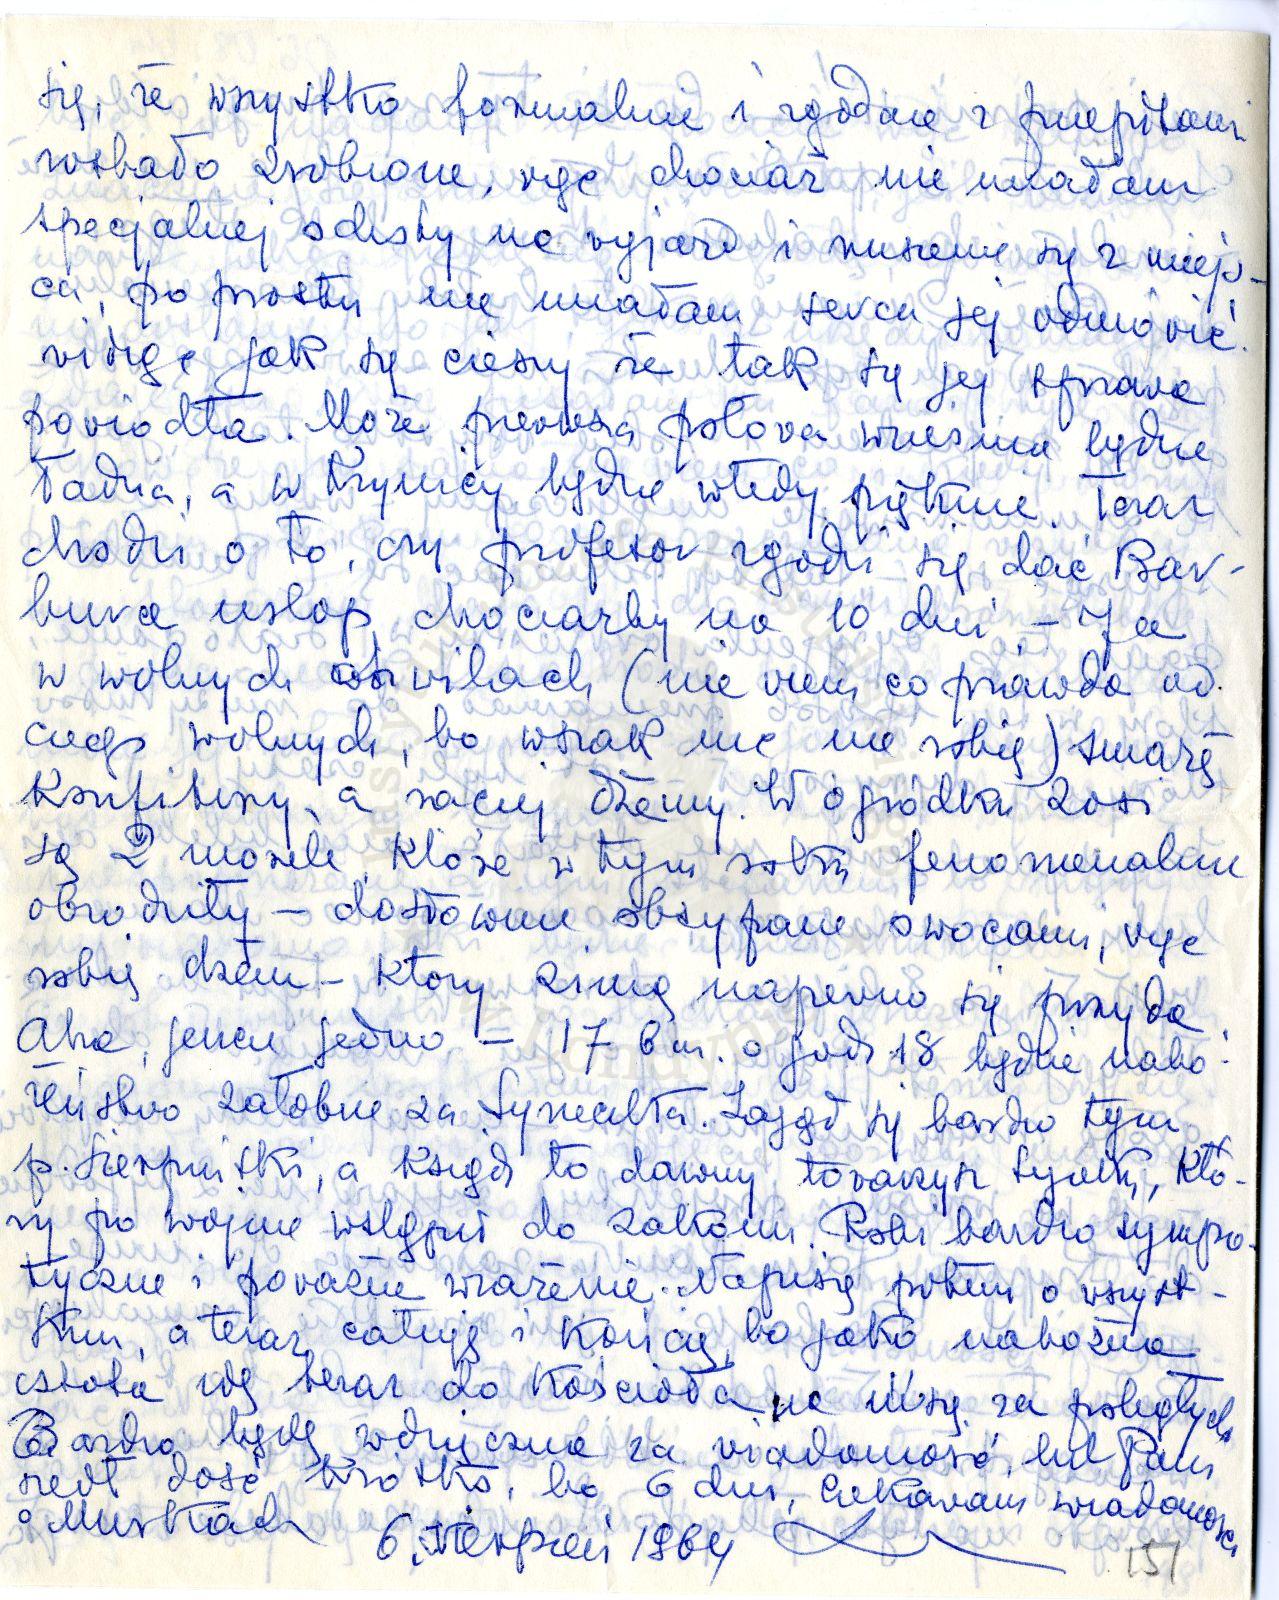 się, że wszystko formalnie i zgodnie z przepisami
zostało zrobione, więc chociaż nie miałam
specjalnej ochoty na wyjazd i ruszenie się z miejs-
ca, po prostu nie miałam serca jej odmówić.
widząc jak się cieszy że tak się jej sprawa
powiodła. Może pierwsza połowa września będzie
ładna, a w Krynicy będzie wtedy pięknie. Teraz
chodzi o to, czy profesor zgodzi się dać Bar-
burce urlop, chociażby na 10 dni – Ja
w wolnych chwilach (nie wiem co prawda od
czego wolnych, bo wszak nic nie robię) smażę
konfitury, a raczej dżemy. W ogródku Zosi
są 2 morele, które w tym roku fenomenalnie
obrodziły – dosłownie obsypane owocami, więc
robię dżem – który zimą napewno się przyda.
Aha, jeszcze jedno – 17 bm. o godz 18 będzie nabo-
żeństwo żałobne za Synculka. Zajął się bardzo tym
p. Sierpiński, a ksiądz to dawny towarzysz , któ-
ry po wojnie wstąpił do zakonu. Robi bardzo sympa-
tyczne i poważne wrażenie. Napiszę potem o wszyst-
kim, a teraz całuję i kończę, bo jako nabożna
osoba idę teraz do Kościoła na mszę za poległych
Bardzo będę wdzięczna za wiadomość, list Pani
szedł dość krótko, bo 6 dni, ciekawam wiadomości
o Muszkach
6. sierpień 1964
151